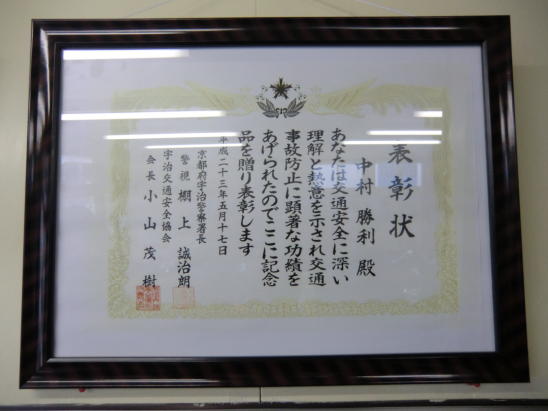 表彰状
中村 勝利 殿
あなたは交通安全に深い
理解と熱意を示され交通
事故防止に顕著な功績を
あげられたのでここに記念
品を贈り表彰します
平成二十三年五月十七日
京都府宇治警察署長
警視 棚上 誠治朗
宇治交通安全協会
会長 小山 茂樹